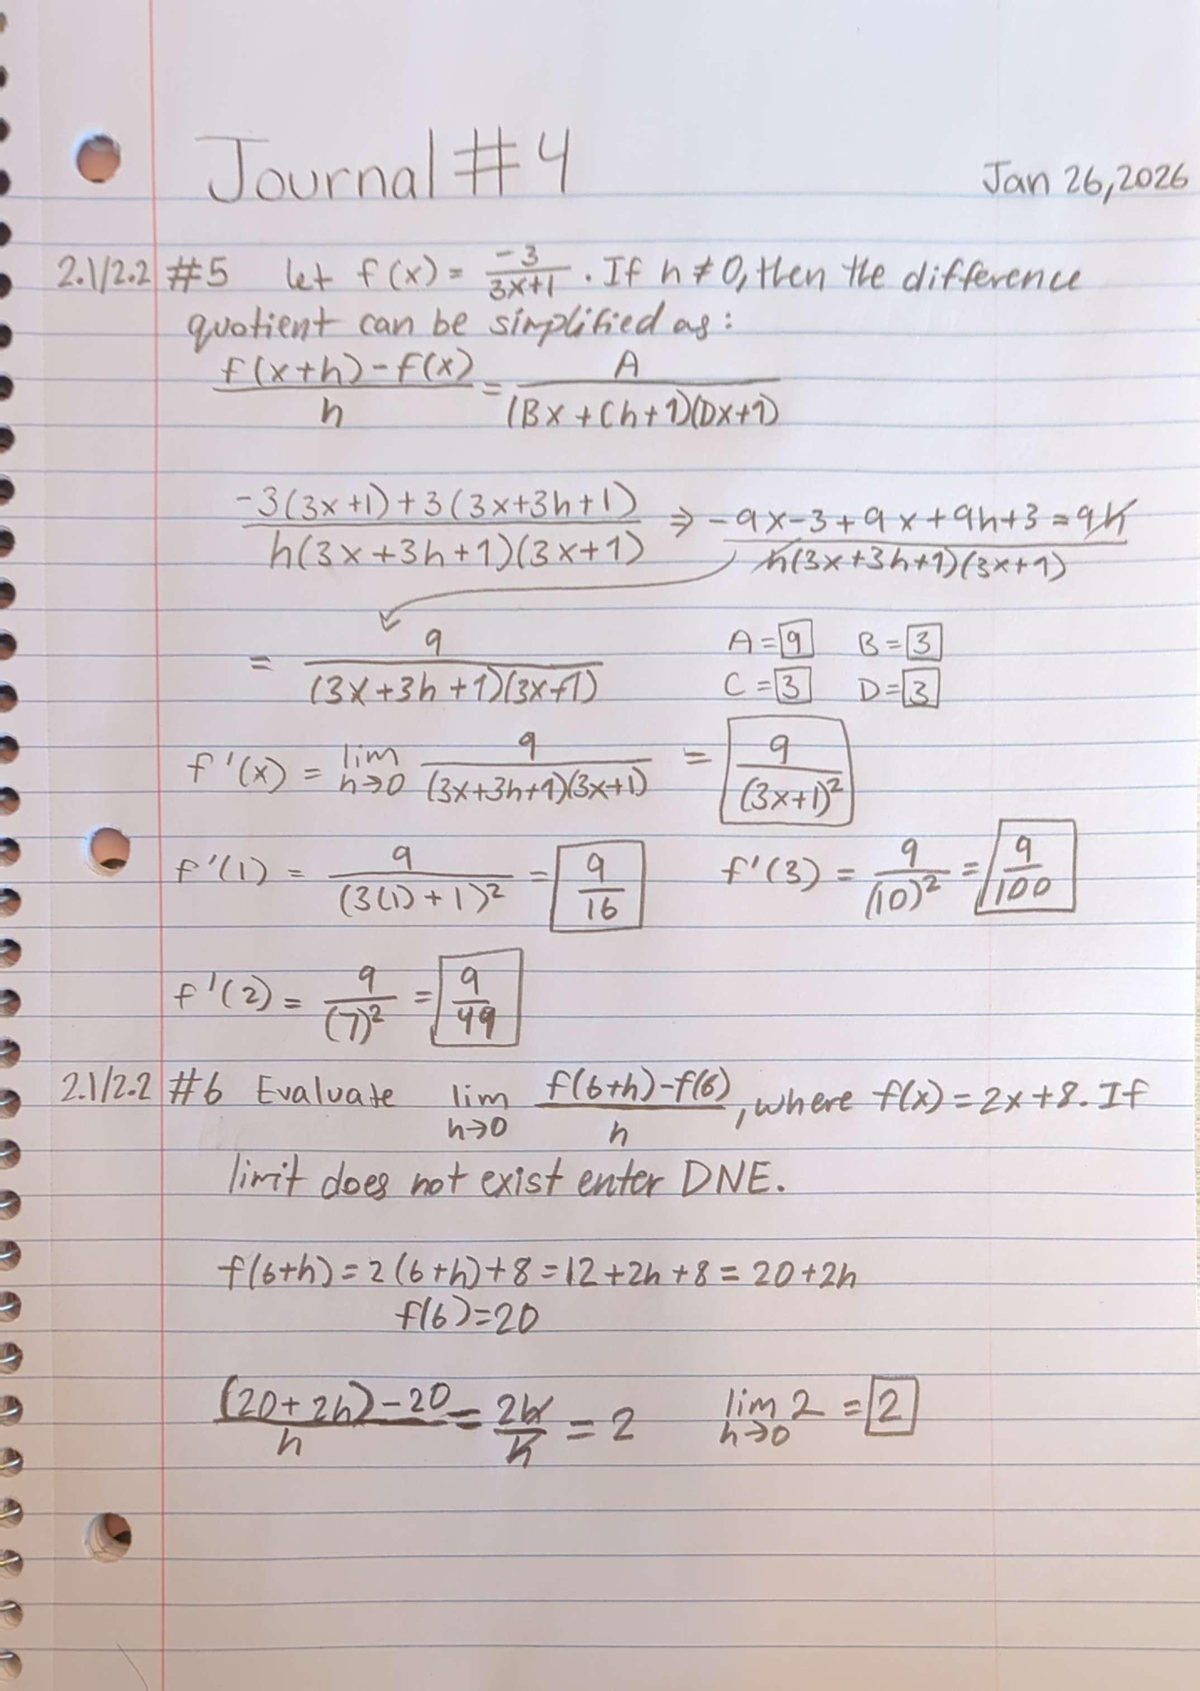 Journal #4
Jan 26, 2026
2.1/2.2 #5 Let f(x) = -3/(3x+1). If h ≠ 0, then the difference
quotient can be simplified as:
(f(x+h)-f(x))/h = A/((Bx+Ch+1)(Dx+1))
(-3(3x+1)+3(3x+3h+1))/(h(3x+3h+1)(3x+1)) ⇒ (-9x-3+9x+9h+3 = 9h)/(h(3x+3h+1)(3x+1))
= 9/((3x+3h+1)(3x+1)) A = 9 B = 3
C = 3 D = 3
f'(x) = lim h→0 9/((3x+3h+1)(3x+1)) = 9/(3x+1)²
f'(1) = 9/(3(1)+1)² = 9/16 f'(3) = 9/(10)² = 9/100
f'(2) = 9/(7)² = 9/49
2.1/2.2 #6 Evaluate lim h→0 (f(6+h)-f(6))/h, where f(x) = 2x+8. If
limit does not exist enter DNE.
f(6+h) = 2(6+h)+8 = 12+2h+8 = 20+2h
f(6) = 20
((20+2h)-20)/h = 2h/h = 2 lim h→0 2 = 2